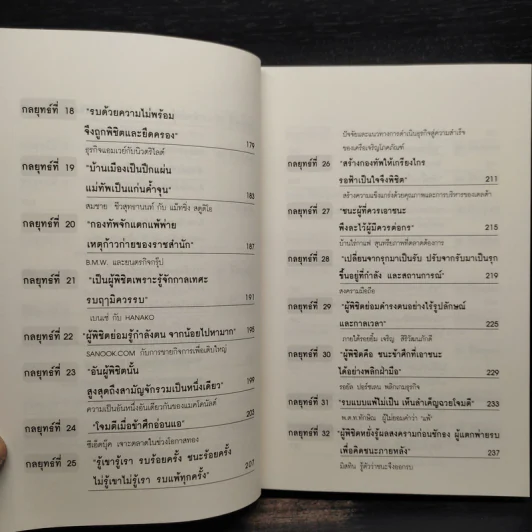 กลยุทธ์ที่ 18 "รบด้วยความไม่พร้อม
จึงถูกพิชิตและยึดครอง" 179
ธุรกิจแอมเวย์กับนิวตริไลต์
กลยุทธ์ที่ 19 "บ้านเมืองเป็นปึกแผ่น
แม่ทัพเป็นแก่นค้ำจุน" 183
สมชาย ชีวสุทธานนท์ กับ แม็ทชิ่ง สตูดิโอ
กลยุทธ์ที่ 20 "กองทัพจักแตกแพ้พ่าย
เหตุก้าวก่ายของราชสำนัก" 187
B.M.W. และยนตรกิจกรุ๊ป
กลยุทธ์ที่ 21 "เป็นผู้พิชิตเพราะรู้จักกาลเทศะ
รบฤๅมิควรรบ" 191
เบนเซ่ กับ HANAKO
กลยุทธ์ที่ 22 "ผู้พิชิตย่อมรู้กำลังตน จากน้อยไปหามาก" 195
SANOOK.COM กับการขายกิจการเพื่อเติบใหญ่
กลยุทธ์ที่ 23 "อันผู้พิชิตนั้น
สูงสุดถึงสามัญจักรวมเป็นหนึ่งเดียว" 199
ความเป็นอันหนึ่งอันเดียวกันของแมคโดนัลด์
กลยุทธ์ที่ 24 "โจมตีเมื่อข้าศึกอ่อนแอ" 203
ซีเอ็ดบุ๊ค เจาะตลาดในช่วงโอกาสทอง
กลยุทธ์ที่ 25 "รู้เขารู้เรา รบร้อยครั้ง ชนะร้อยครั้ง
ไม่รู้เขาไม่รู้เรา รบแพ้ทุกครั้ง" 207
ปัจจัยและแนวทางการดำเนินธุรกิจสู่ความสำเร็จ
ของเครือเจริญโภคภัณฑ์
กลยุทธ์ที่ 26 "สร้างกองทัพให้เกรียงไกร
รอฟ้าเป็นใจจึงพิชิต" 211
สร้างความแข็งแกร่งด้วยคุณภาพและการบริหารของเดลต้า
กลยุทธ์ที่ 27 "ชนะผู้ที่ควรเอาชนะ
พึงละไว้ผู้มีควรต่อกร" 215
บ้านไร่กาแฟ สุนทรียภาพที่ตลาดต้องการ
กลยุทธ์ที่ 28 "เปลี่ยนจากรุกมาเป็นรับ ปรับจากรับมาเป็นรุก
ขึ้นอยู่ที่กำลัง และสถานการณ์" 219
สงครามมือถือ
กลยุทธ์ที่ 29 "ผู้พิชิตย่อมดำรงตนอย่างไร้รูปลักษณ์
และกาลเวลา" 225
ภายใต้รอยยิ้ม เจริญ สิริวัฒนภักดี
กลยุทธ์ที่ 30 "ผู้พิชิตคือ ชนะข้าศึกที่เอาชนะ
ได้อย่างพลิกฝ่ามือ" 229
รอยัล ปอร์ซเลน พลิกเกมธุรกิจ
กลยุทธ์ที่ 31 "รบแบบแพ้ไม่เป็น เห็นสำเค็ญฉวยโจมตี" 233
พ.ต.ท.ทักษิณ ผู้ไม่ยอมคำว่า "แพ้"
กลยุทธ์ที่ 32 "ผู้พิชิตหยั่งรู้ผลสงครามก่อนชักธง ผู้แตกพ่ายรบ
เพื่อคิดชนะภายหลัง" 237
มิสทิน รู้ตัวว่าชนะจึงออกรบ